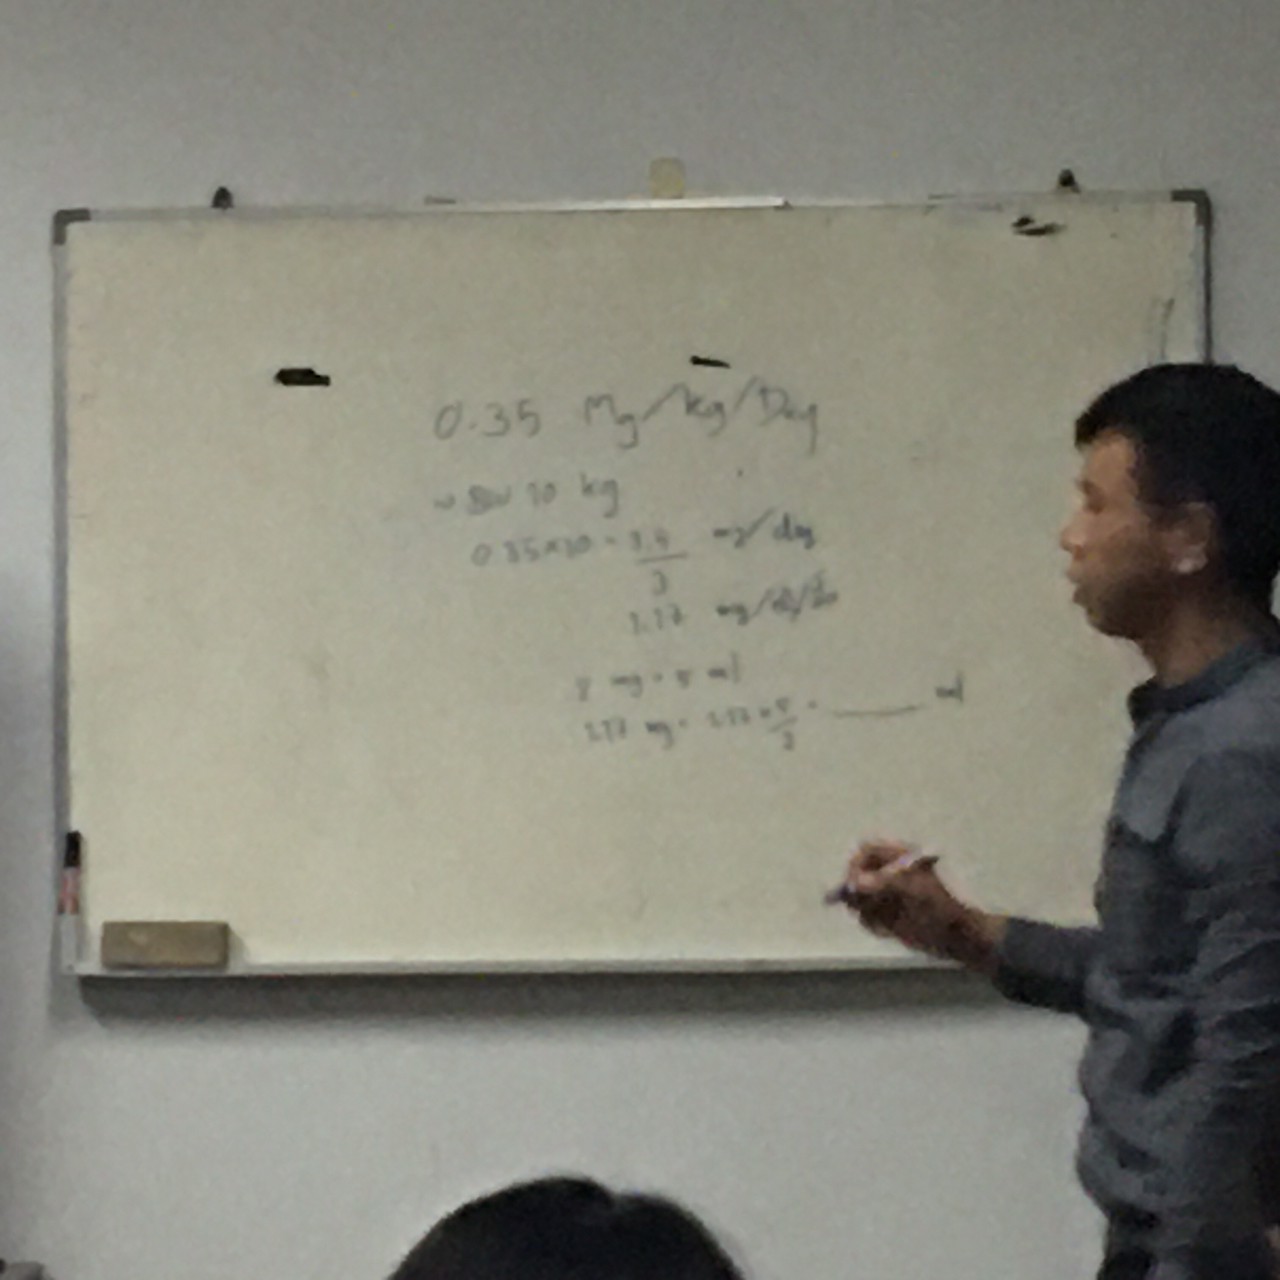 0.35 Mg/kg/Day
~ BW 10 kg
0.35×10 = 3.5 mg/day
3
1.17 mg/
mg = 5 ml
1.17 mg = 1.17 × 5 = ____ ml